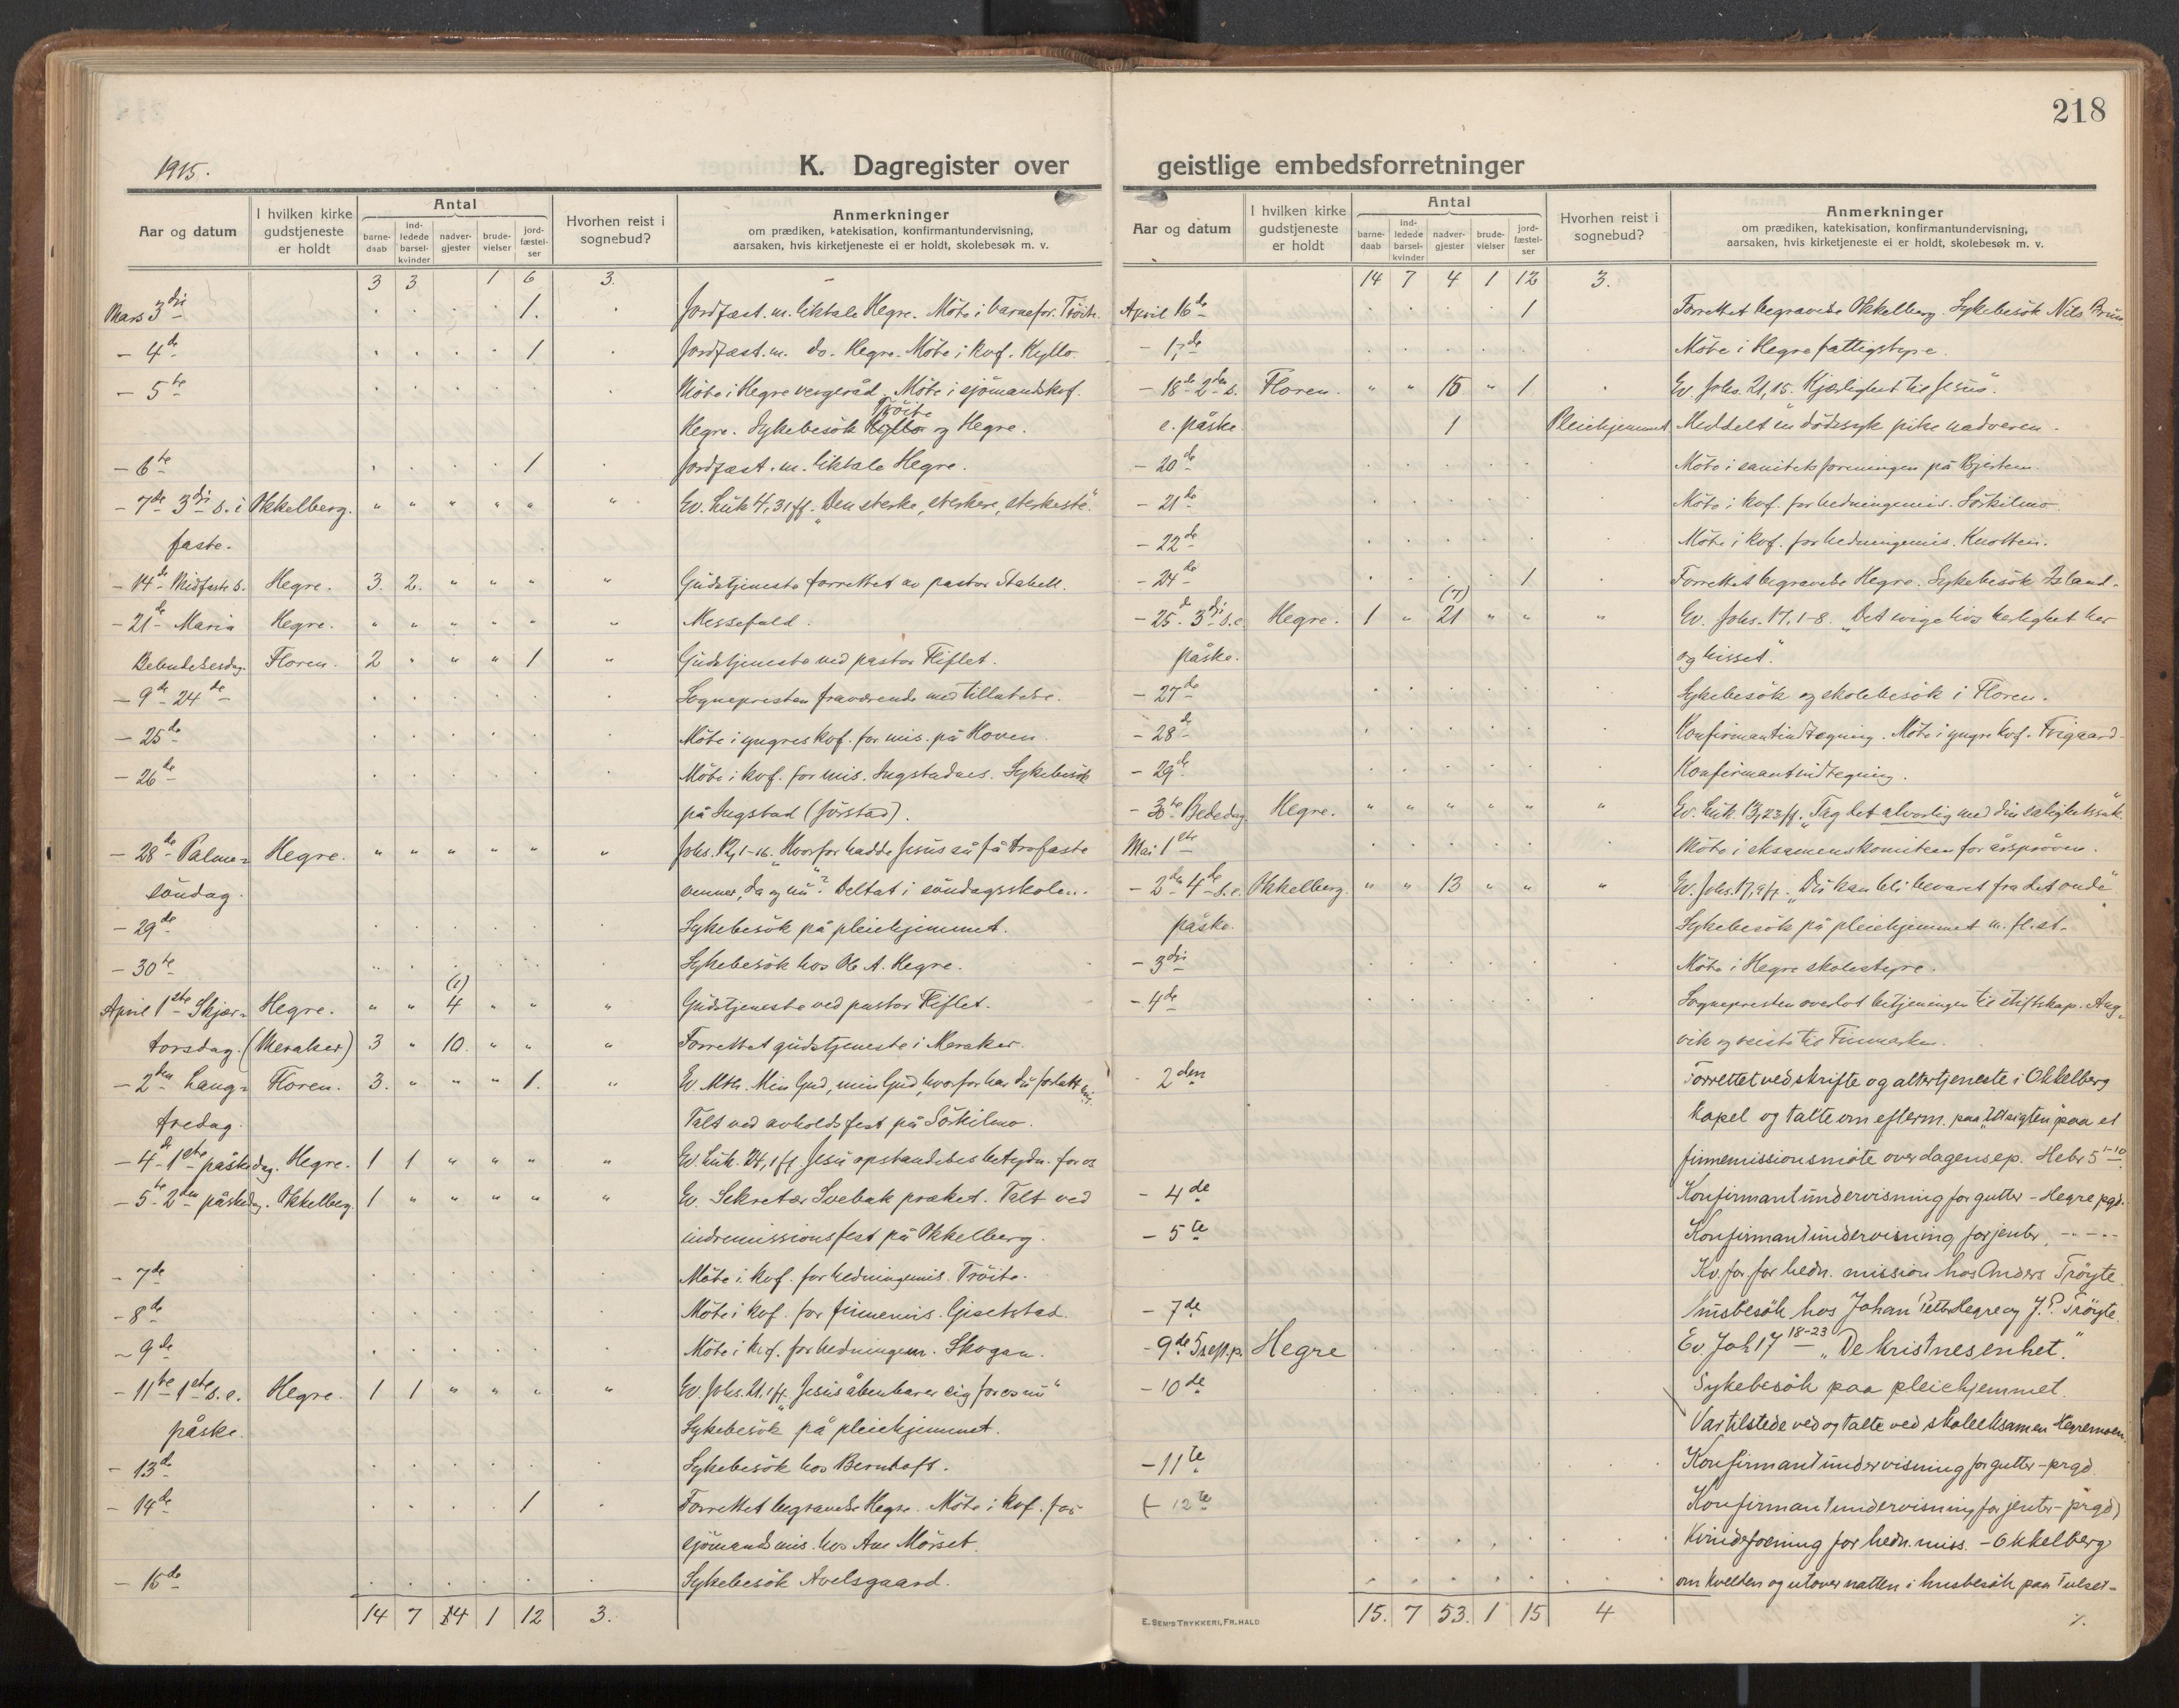 218
1915.
K. Dagregister over geistlige embedsforretninger
Aar og datum
I hvilken kirke gudstjeneste er holdt
Antal
barne-daab
ind-ledede barsel-kvinder
nadver-gjester
brude-vielser
jord-fæstel-ser
Hvorhen reist i sognebud?
Anmerkninger
om prædiken, katekisation, konfirmantundervisning,
aarsaken, hvis kirketjeneste ei er holdt, skolebesøk m. v.
3 3 1 6 3.
Mars 3dji 1. Jordfæst. m. liktale Hegre. Möte i barnefor. Tröite.
- 4de 1 Jordfæst. m. do. Hegre. Möte i kvf. Kyllo.
- 5te Möte i Hegre vergeråd. Möte i sjömandskvf.
Tröite
Hegre. Sykebesök Kyllo og Hegre.
- 6te 1 Jordfæst. m. liktale Hegre.
- 7de 3dji s. i Okkelberg. " " " " " " Ev. Luk 4,31 ff. "Den sterke, sterkere, sterkeste".
faste.
- 14de Midfaste s. Hegre. 3. 2. " " " " Gudstjeneste forrettet av pastor Stabell.
- 21de Maria Hegre. " " " " " " Messefald.
Bebudelsesdag. Floren. 2 " " " 1 " Gudstjeneste ved pastor Fliflet.
- 9de - 24de Sognepresten fraværende med tillatelse.
- 25de Möte i yngres kvf. for mis. på Koven.
- 26de Möte i kvf. for mis. Ingstadnes. Sykebesök
på Ingstad (Jörstad).
- 28de Palme= Hegre. " " " " " " Johs. 12,1-16. "Hvorfor hadde Jesus så få trofaste
söndag. venner, da og nu"? Deltat i söndagsskolen.
- 29de Sykebesök på pleiehjemmet.
- 30te Sykebesök hos Ole A. Hegre.
(1)
April 1ste Skjær= Hegre. " " 4 " " " Gudstjeneste ved pastor Fliflet.
torsdag. (Meraker) 3 " 10. " " " Forrettet gudstjeneste i Meraker.
- 2den Lang= Floren. 3. " " " 1. " Ev. Mth. Min Gud, min Gud, hvorfor har du forlatt mig.
fredag. Talt ved avholdsfest på Sörkilmo.
- 4de 1ste påskedag. Hegre. 1 1 " " " " Ev. Luk. 24,1 ff Jesu opstandelses betydn. for os
- 5te 2den påskedag. Okkelberg. 1 " " " " " Ev. Sekretær Svebak præket. Talt ved
indremissionsfest på Okkelberg.
- 7de Möte i kvf. for hedningemis. Tröite.
- 8de Möte i kvf. for finnemis. Gjeetstad.
- 9de Möte i kvf. for hedningem. Skogan.
- 11te 1ste s. e. Hegre. 1 1 " " " " Ev. Johs. 21,1 ff. "Jesus åbenbarer sig for os nu"
påske. Sykebesök på pleiehjemmet.
- 13de Sykebesök hos Berntoft.
- 14de 1 Forrettet begravelse Hegre. Möte i kvf. for
sjömandsmis. hos Ane Mörset.
- 15de Sykebesök Avelsgaard.
14 7 14 1 12 3.
Aar og datum
I hvilken kirke gudstjeneste er holdt
Antal
barne-daab
ind-ledede barsel-kvinder
nadver-gjester
brude-vielser
jord-fæstel-ser
Hvorhen reist i sognebud?
Anmerkninger
om prædiken, katekisation, konfirmantundervisning,
aarsaken, hvis kirketjeneste ei er holdt, skolebesøk m. v.
14 7 4 1 12 3.
April 16de 1 Forrettet begravelse Okkelberg. Sykebesök Nils Bruu
- 17de Möte i Hegre fattigstyre.
- 18de 2den s. Floren. " " 15 " 1 Ev. Johs. 21,15. "Kjærlighet til Jesus".
e. påske 1 Pleiehjemmet Meddelt en dödssyk pike nadveren.
- 20de Möte i sanitetsforeningen på Bjertem.
- 21de Möte i kvf. for hedningemis. Sörkilmo.
- 22de Möte i kvf. for hedningemis. Knotten.
- 24de 1 Forrettet begravelse Hegre. Sykebesök Island.
(7)
- 25de 3dji s. e Hegre. 1 " 21 " " " Ev. Johs. 17,1-8. "Det evige livs herlighet her
påske. og hisset".
- 27de Sykebesök og skolebesök i Floren.
- 28de Konfirmantindtegning. Möte i yngre kvf. Trigaard.
- 29de Konfirmantindtegning.
- 30te Bededag. Hegre. " " " " " " Ev. Luk. 13,23 ff. "Tag det alvorlig med din salighetssak"
Mai 1ste Möte i eksamenskomiteen for årspröven.
- 2den 4de s. e. Okkelberg. " " 13 " " " Ev. Johs. 17,9 ff. "Du kan bli bevaret fra det onde"
påske. Sykebesök på pleiehjemmet m. fl. st.
- 3dji Möte i Hegre skolestyre.
- 4de Sognepresten overlot betjeningen til stiftskap. Aug=
vik og reiste til Finmarken.
- 2den Forrettet ved skrifte og altertjeneste i Okkelberg
kapel og talte om efterm. paa "Utsigten" paa et
finnemissionsmöte over dagens ep. Hebr 5 1-10.
- 4de Konfirmantundervisning for gutter - Hegre pgd.
- 5te Konfirmantundervisning for jenter, -..-..
Kv. for. for hedn. mission hos Anders Tröyte.
- 7de Husbesök hos Johan Petter Hegre og J. P. Tröyte.
- 9de 5 s. eft. p. Hegre Ev. Joh 17 18-23 "De kristnes enhet."
- 10de Sykebesök paa pleiehjemmet.
Var tilstede ved og talte ved skoleeksamen Hegremoen.
- 11te Konfirmantundervisning for gutter - prgd.
(- 12te Konfirmantundervisning for jenter - prgd)
Kvindeforening for hedn. miss. - Okkelberg
om kvelden og utover natten i husbesök paa Tulset-
15. 7 53. 1 15 4
E. SEM'S TRYKKERI, FR.HALD